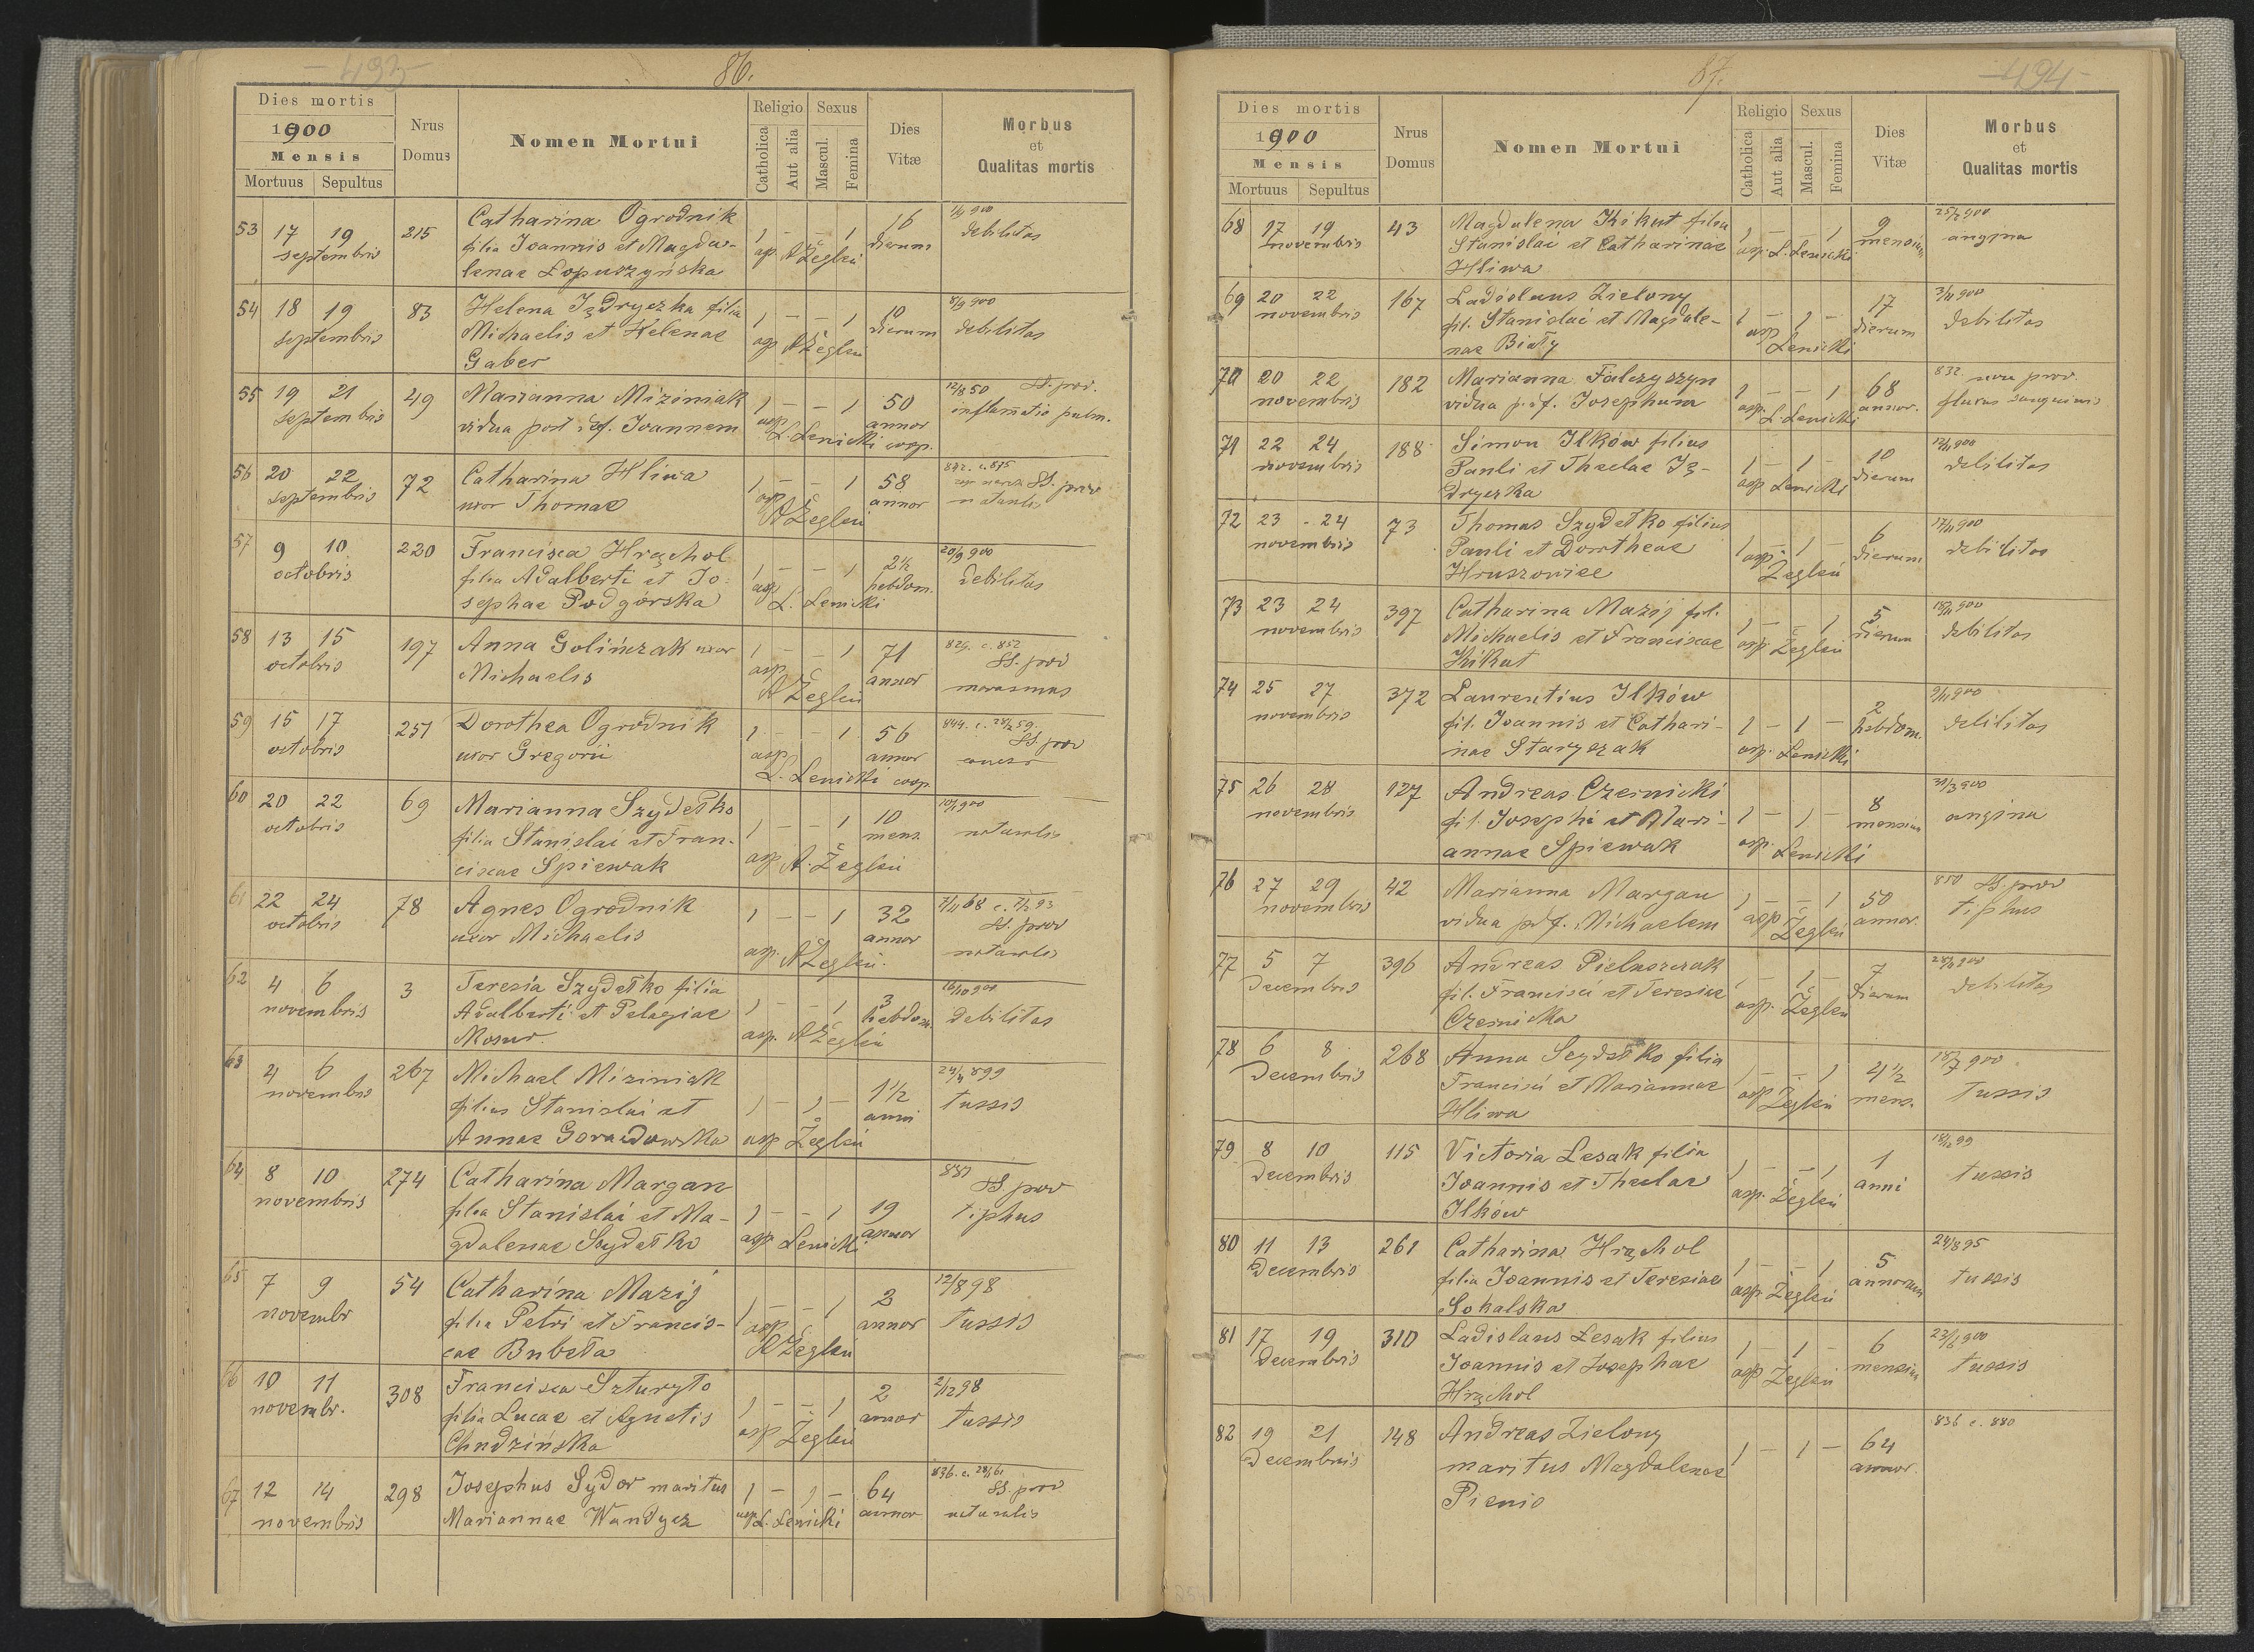 - 493 -
86.
Dies mortis
1900
Mensis
Mortuus Sepultus
Nrus Domus
Nomen Mortui
Religio
Catholica
Aut alia
Sexus
Mascul.
Femina
Dies Vitæ
Morbus et Qualitas mortis
53 17 19 215 Catharina Ogrodnik 1 - - 1 16 11/9 900
septembris filia Joannis et Magda- asp. A Żegleń dierum debilitas
lenae Łopuszyńska
54 18 19 83 Helena Jędryczka filia 1 - - 1 10 8/9 900
septembris Michaelis et Helenae asp A Żegleń dierum debilitas
Gaber
55 19 21 49 Marianna Miziniak 1 - - 1 50 12/8 50 SS. prov.
septembris vidua post def. Joannem asp L. Lenicki coop. annor inflamatio pulm.
56 20 22 72 Catharina Hliwa 1 - - 1 58 842. c. 875
septembris uxor Thomae asp A Żegleń annor SS. prov
naturalis
57 9 10 220 Francisca Hrąchol 1 - - 1 2½ 20/9 900
octobris filia Adalberti et Jo- asp L. Lenicki hebdom. debilitas
sephae Podgórska
58 13 15 197 Anna Golińczak uxor 1 - - 1 71 829. c. 852
octobris Michaelis asp A Żegleń annor SS. prov
marasmus
59 15 17 251 Dorothea Ogrodnik 1 - - 1 56 844. c. 28/2 59.
octobris uxor Gregorii asp L. Lenicki coop. annor SS. prov
60 20 22 69 Marianna Szydełko 1 - - 1 10 10/1 900
octobris filia Stanislai et Fran- asp A. Żegleń mens. naturalis
ciscae Spiewak
61 22 24 78 Agnes Ogrodnik 1 - - 1 32 7/11 68 c. 7/2 93
octobris uxor Michaelis asp. A Żegleń annor SS. prov
naturalis
62 4 6 3 Teresia Szydełko filia 1 - - 1 3 16/10 900
novembris Adalberti et Pelagiae asp. A Żegleń hebdom. debilitas
Mosur.
63 4 6 267 Michael Miziniak 1 - 1 - 1½ 24/4 899
novembris filius Stanislai et asp Żegleń anni tussis
Annae Gorazdowska
64 8 10 274 Catharina Margan 1 - - 1 19 881
novembris filia Stanislai et Ma- asp Lenicki annor SS prov
gdalenae Szydełko tiphus
65 7 9 54 Catharina Mazij 1 - - 1 2 12/8 98
novembr filia Petri et Francis- asp A Żegleń annor tussis
cae Bubeła
66 10 11 308 Francisca Szturyło 1 - - 1 2 2/12 98
novembr. filia Lucae et Agnetis asp Żegleń annor tussis
Chudzińska
67 12 14 298 Josephus Sydor maritus 1 - 1 - 64 836. c. 28/1 61
novembris Mariannae Wandycz asp L. Lenicki annor SS. prov
naturalis
87.
- 494 -
Dies mortis
1900
Mensis
Mortuus Sepultus
Nrus Domus
Nomen Mortui
Religio
Catholica
Aut alia
Sexus
Mascul.
Femina
Dies Vitæ
Morbus et Qualitas mortis
68 17 19 43 Magdalena Kikut filia 1 - - 1 9 25/2 900
novembris Stanislai et Catharinae asp. L. Lenicki mensium angina
Hliwa
69 20 22 167 Ladislaus Zielony 1 - 1 - 17 3/11 900
novembris fil. Stanislai et Magdale- asp Lenicki dierum debilitas
nae Biały
70 20 22 182 Marianna Fałczyszyn 1 - - 1 68 832. non prov.
novembris vidua p. def. Josephum asp. L Lenicki annor. fluxus sanguinis
71 22 24 188 Simon Ilków filius 1 - 1 - 10 12/11 900
novembris Pauli et Theclae Ję- asp Lenicki dierum debilitas
dryczka
72 23 - 24 73 Thomas Szydełko filius 1 - 1 - 6 17/11 900
novembris Pauli et Dorotheae asp. Żegleń dierum debilitas
Hruszowice
73 23 24 397 Catharina Mazij fil. 1 - - 1 5 18/11 900
novembris Michaelis et Franciscae asp Żegleń dierum debilitas
Kikut
74 25 27 372 Laurentius Ilków 1 - 1 - 2 9/11 900
novembris fil. Joannis et Cathari- asp. Lenicki hebdom. debilitas
nae Staryszak
75 26 28 127 Andreas Czernicki 1 - 1 - 8 31/3 900
novembris fil. Josephi et Mari- asp. Lenicki mensium angina
annae Spiewak
76 27 29 42 Marianna Margan 1 - - 1 50 850 SS. prov
novembris vidua p. def. Michaelem asp Żegleń annor. tiphus
77 5 7 396 Andreas Pieluszczak 1 - 1 - 7 28/11 900
Decembris fil. Francisci et Teresiae asp. Żegleń dierum debilitas
Czernicka
78 6 8 268 Anna Szydełko filia 1 - - 1 4½ 18/7 900
Decembris Francisci et Mariannae asp Żegleń mens. tussis
Hliwa
79 8 10 115 Victoria Lesak filia 1 - - 1 1 18/12 99
Decembris Joannis et Theclae asp. Żegleń anni tussis
Ilków
80 11 13 261 Catharina Hrąchol 1 - - 1 5 24/8 95
Decembris filia Joannis et Teresiae asp. Żegleń annorum tussis
Sokalska
81 17 19 310 Ladislaus Lesak filius 1 - 1 - 6 23/6 900
Decembris Joannis et Josephae asp Żegleń mensium tussis
Hrąchol
82 19 21 148 Andreas Zielony 1 - 1 - 64 836 c. 880
Decembris maritus Magdalenae annor.
Pienio